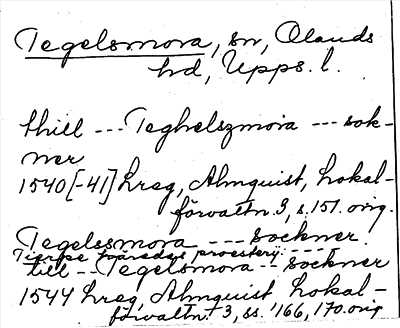 Tegelsmora, sn, Olands
hd, Upps. l.
thill --- Teghelszmora --- sok-
ner
1540[-41] Lreg, Almquist, Lokal-
förvaltn. 3, s. 151. orig.
Tegelssmora ---- sockner.
Tierpe häredys prosterij -----
till -- Tegelsmora -- sockner
1544 Lreg, Almquist, Lokal-
förvaltn. 3, ss. 166, 170. orig